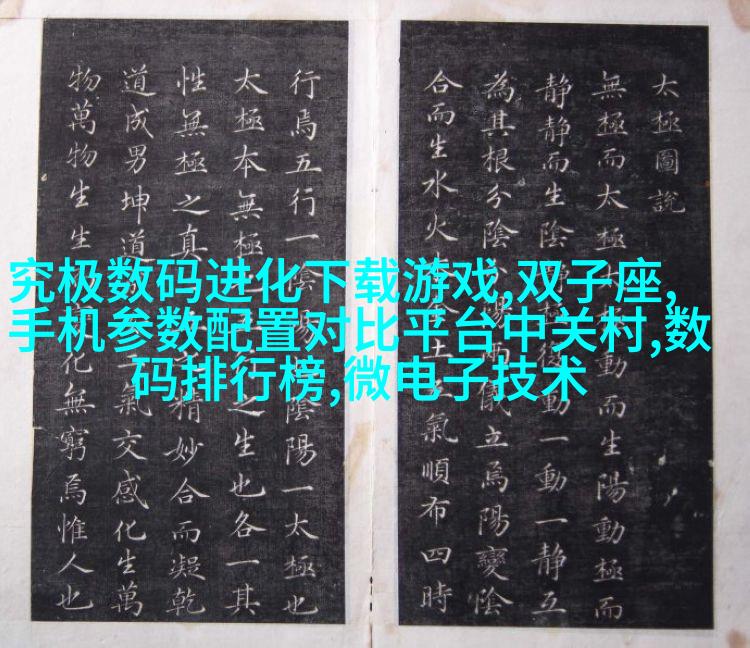 究极数码进化下载游戏,双子座,
手机参数配置对比平台中关村,数
码排行榜,微电子技术
太極圖說
無極而太極太動而生陽動極而
靜靜而生陰動一動一靜互
為其根分陰儀立焉陽變陰
合而生水火土氣順布四時
行焉五行一陰陽陰陽一太極也
太極本無極之生也各一其
性無極之真精妙合而凝乾
道成男坤道二氣交感化生萬
物萬物生生化無窮焉惟人也